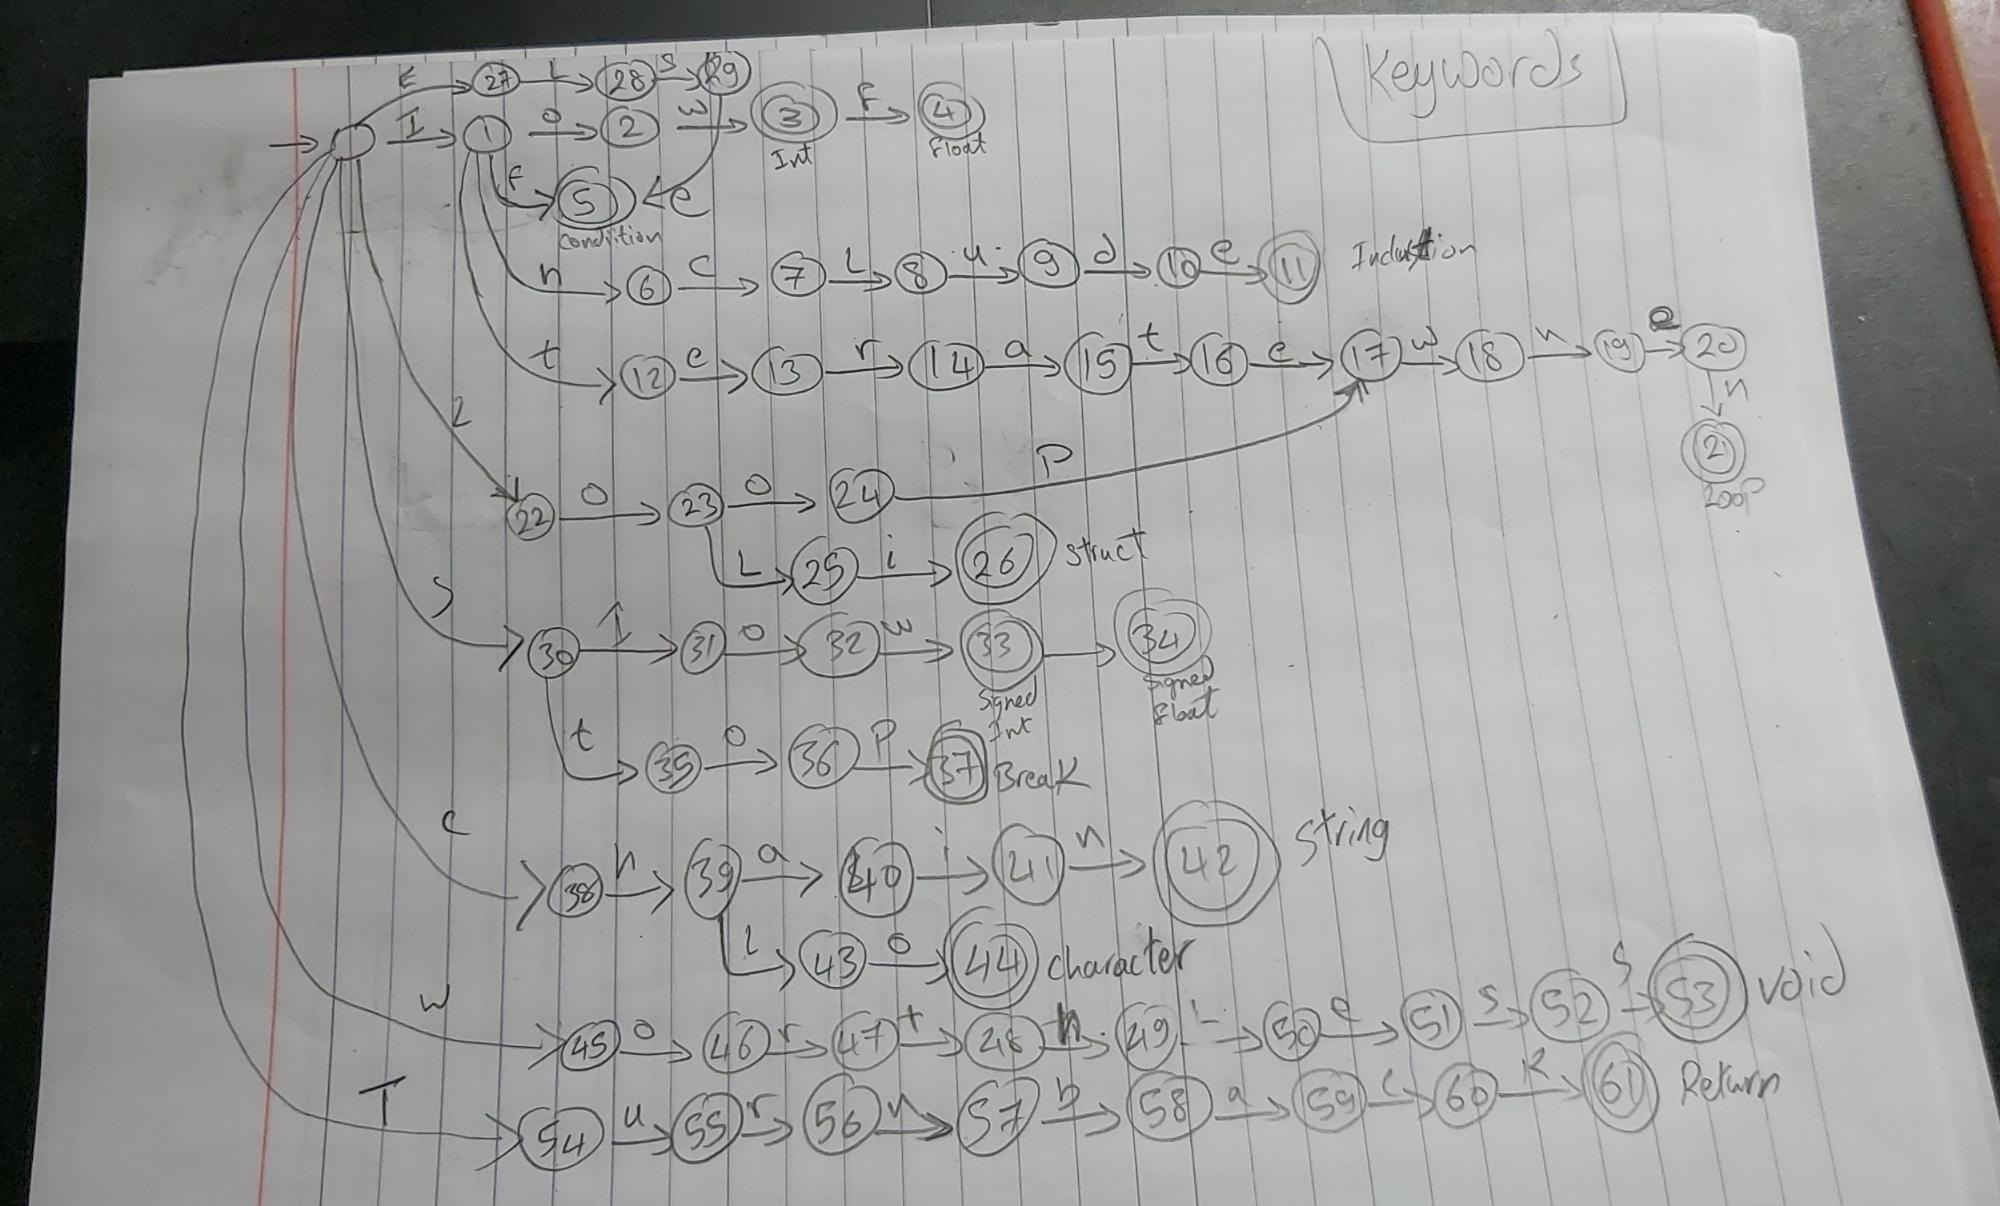 Keywords
E 27 L 28 S 29
I 1 o 2 w 3 F 4
Int Float
F 5 e
Condition
n 6 c 7 L 8 u 9 d 10 e 11 Inclustion
t 12 e 13 r 14 a 15 t 16 e 17 w 18 h 19 e 20
n
21
Loop
L 22 o 23 o 24 P
L 25 i 26 Struct
S 30 I 31 o 32 w 33 34
Signed Int Signed Float
t 35 o 36 P 37 Break
C 38 h 39 a 40 i 41 n 42 String
l 43 o 44 character
w 45 o 46 r 47 t 48 h 49 L 50 e 51 s 52 s 53 void
T 54 u 55 r 56 n 57 b 58 a 59 c 60 K 61 Return